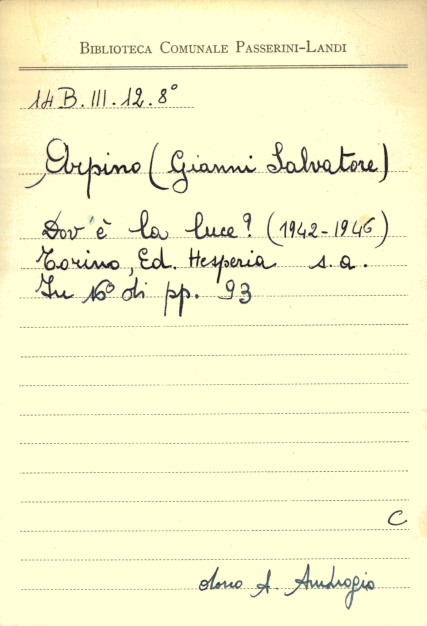 BIBLIOTECA COMUNALE PASSERINI-LANDI
14 B. III. 12. 8°
Arpino (Gianni Salvatore)
Dov'è la luce? (1942-1946)
Torino, Ed. Hesperia s. a.
In 16° di pp. 93
C
dono A. Ambrogio